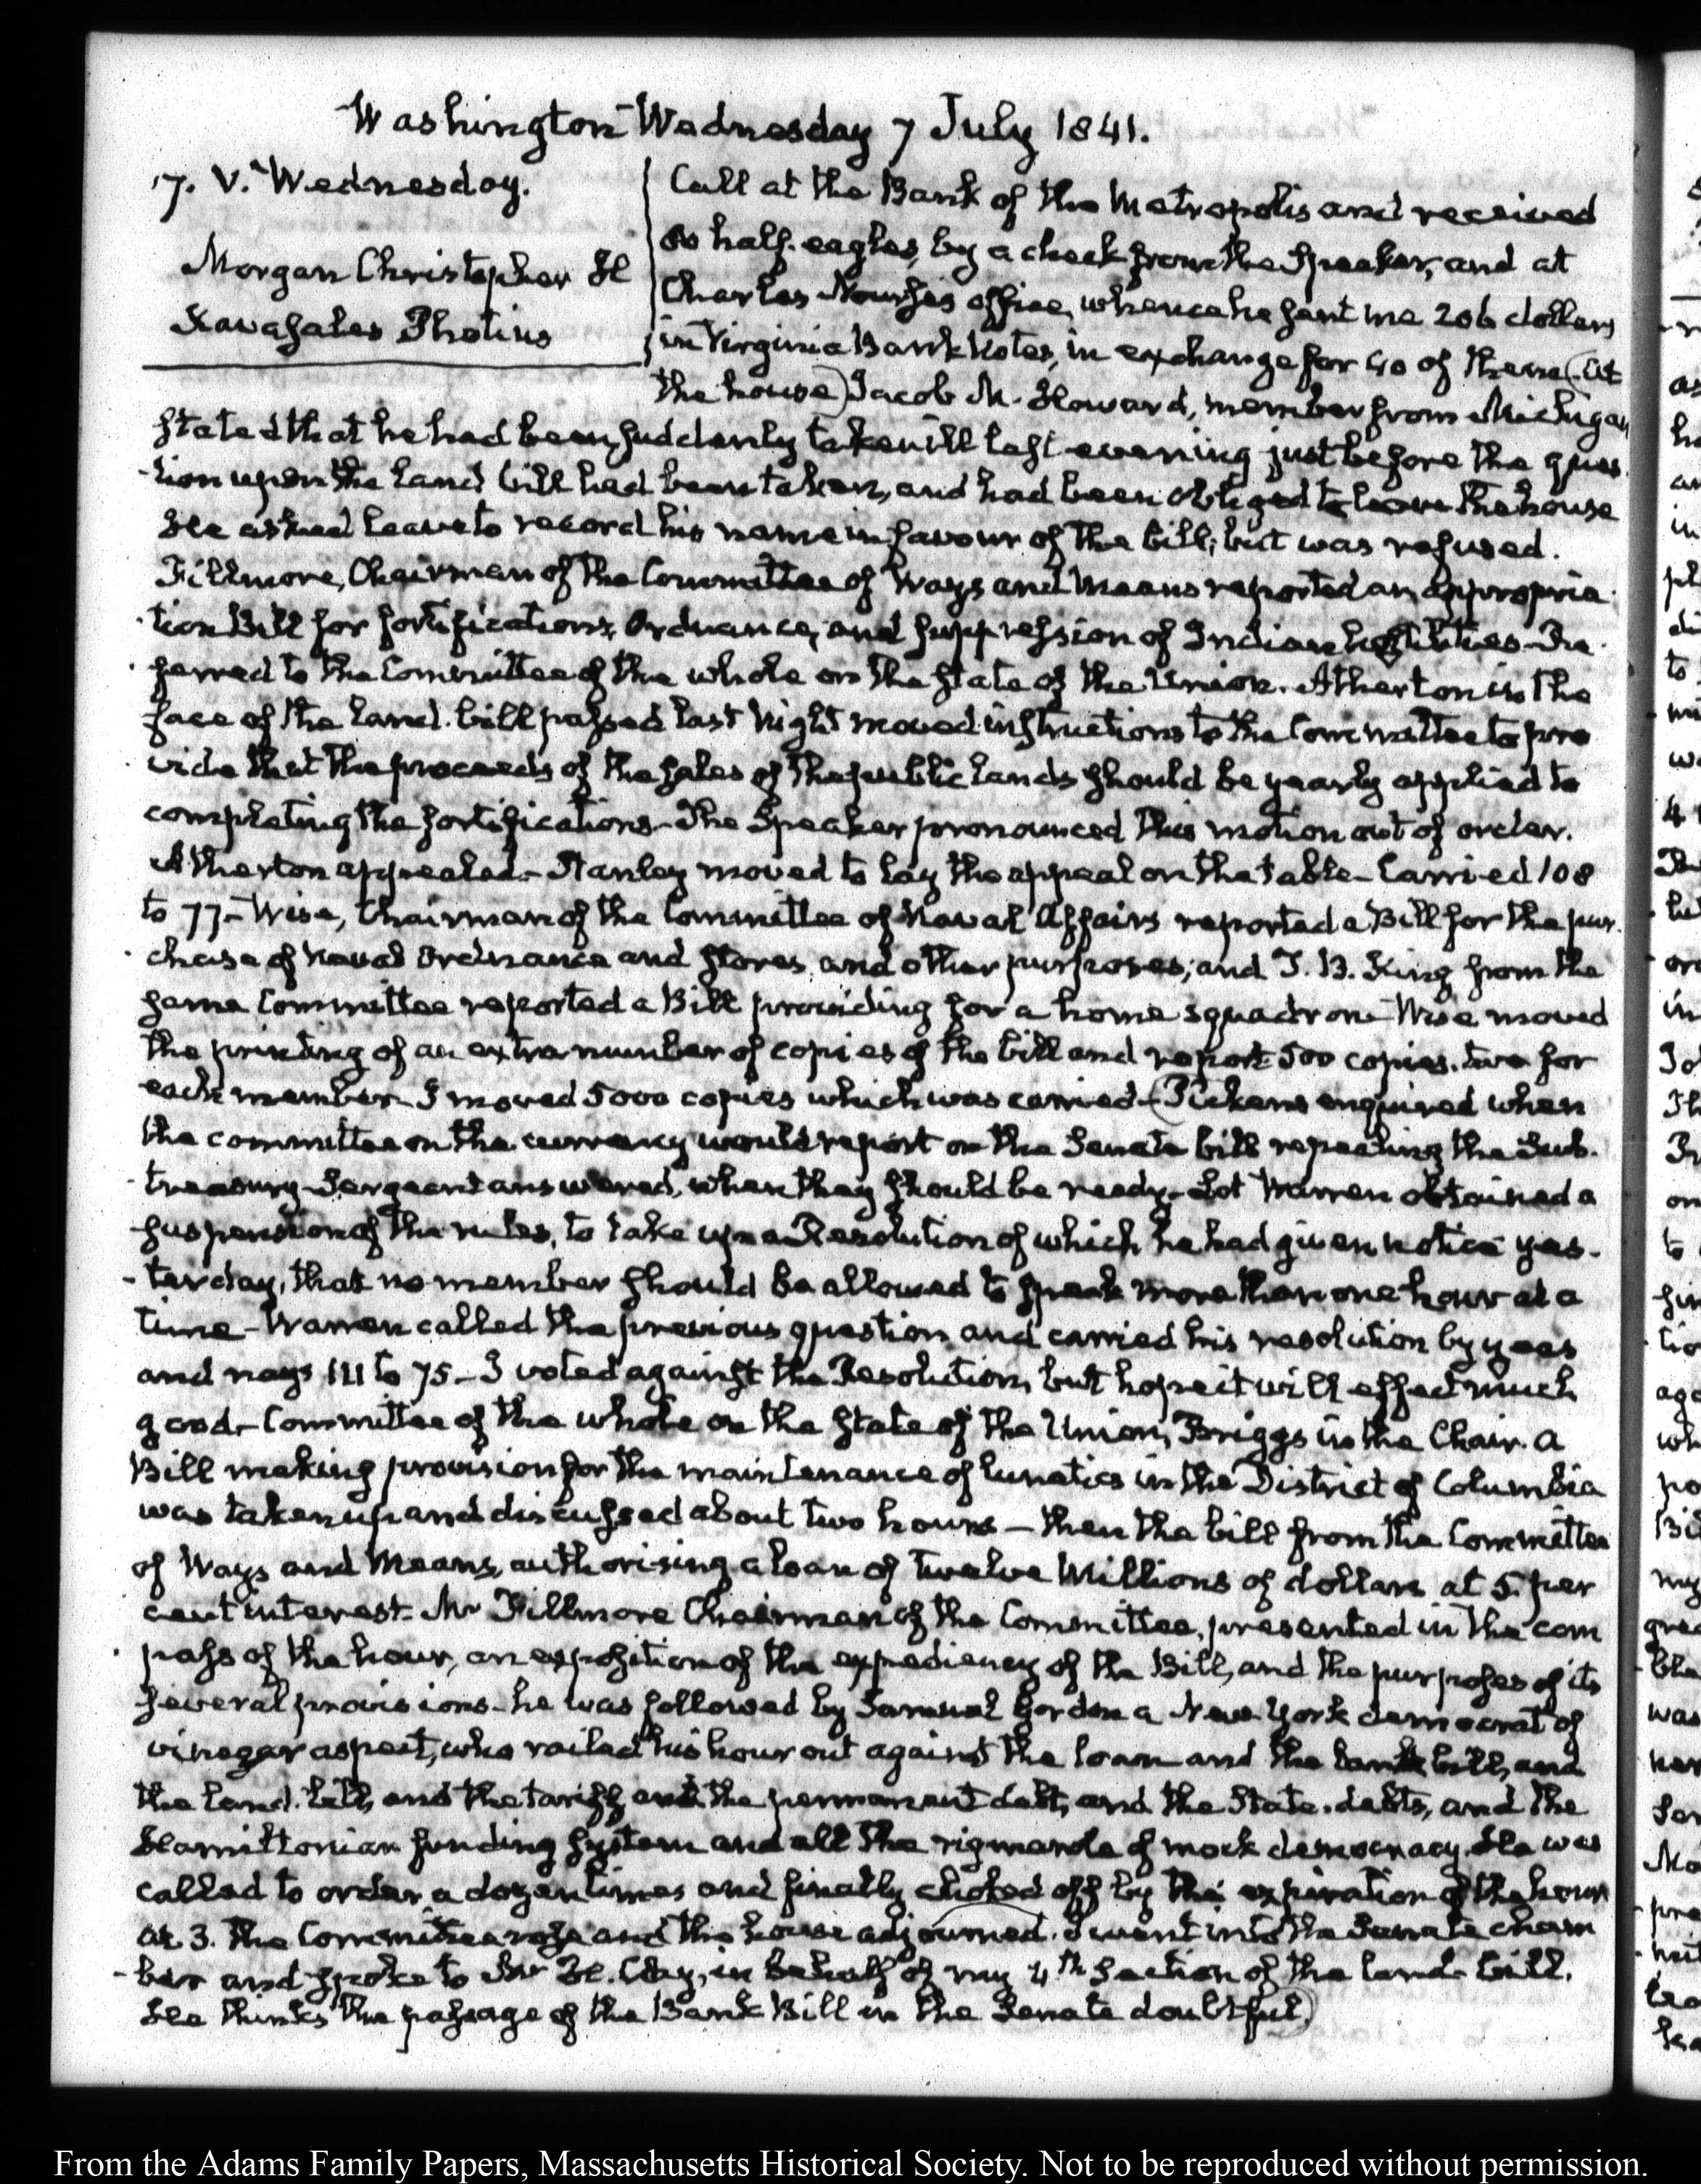 Washington Wednesday 7 July 1841.
7. V. Wednesday.
Morgan Christopher H
Kavasales Photius
Call at the Bank of the Metropolis and received
half-eagles, by a check from the Speaker, and at
Charles Nourse's office, whence he sent me 206 dollars
in Virginia Bank Notes, in exchange for 40 of them (at
the house) Jacob M. Howard, member from Michigan
stated that he had been suddenly taken ill last evening just before the ques
-tion upon the land bill had been taken, and had been obliged to leave the house
He asked leave to record his name in favour of the bill; but was refused.
Fillmore, Chairman of the Committee of Ways and Means reported an appropria
tion Bill for fortifications, Ordnance, and suppression of Indian hostilities. Re
ferred to the Committee of the whole on the state of the Union. Atherton in the
face of the land-bill passed last Night moved instructions to the Committee to pro
vide that the proceeds of the sales of the public lands should be yearly applied to
completing the fortifications- The Speaker pronounced this motion out of order.
Atherton appealed- Stanley moved to lay the appeal on the table- Carried 108
to 77- Wise, Chairman of the Committee of Naval Affairs reported a Bill for the pur
chase of naval Ordnance and stores, and other purposes; and T. B. King from the
same Committee reported a Bill providing for a home squadron- Wise moved
the printing of an extra number of copies of the bill and report 500 copies. two for
each member- I moved 5000 copies which was carried- (Pickens enquired when
the committee on the currency would report on the Senate bill repealing the Sub-
-treasury- Sergeant answered, when they should be ready- Lot Warren obtained a
suspension of the rules, to take up a Resolution of which he had given notice yes-
-terday, that no member should be allowed to speak more than one hour at a
time- Warren called the previous question and carried his resolution by yeas
and nays 111 to 75- I voted against the Resolution, but hope it will effect much
good- Committee of the whole on the state of the Union, Briggs in the Chair. A
Bill making provision for the maintenance of lunatics in the District of Columbia
was taken up and discussed about two hours- then the bill from the Committee
of Ways and Means, authorising a loan of twelve Millions of dollars at 5. per
cent interest- Mr Fillmore Chairman of the Committee, presented in the com
pass of the hour, an exposition of the expediency of the Bill, and the purposes of its
several provisions- he was followed by Samuel Gordon a New-York democrat of
vinegar aspect, who railed his hour out against the loan and the bank bill, and
the land-bill, and the tariff and the permanent debt, and the State-debts, and the
Hamiltonian funding system and all the rigmarole of mock democracy. He was
called to order a dozen times and finally choked off by the expiration of the hour
at 3. the Committee rose and the house adjourned. I went into the Senate cham
-ber and spoke to Mr H. Clay, in behalf of my 4th section of the land-bill.
He thinks the passage of the Bank Bill in the Senate doubtful)
From the Adams Family Papers, Massachusetts Historical Society. Not to be reproduced without permission.